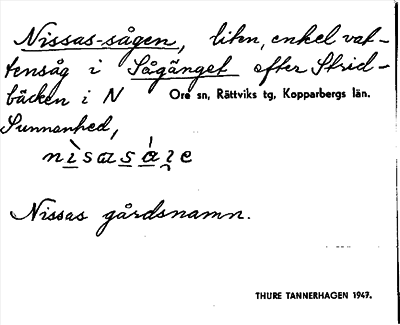 Nissas-sågen, liten, enkel vat-
tensåg i Sågänget efter Strid-
bäcken i N Ore sn, Rättviks tg, Kopparbergs län.
Sunnanhed,
Nissas gårdsnamn.
THURE TANNERHAGEN 1947.